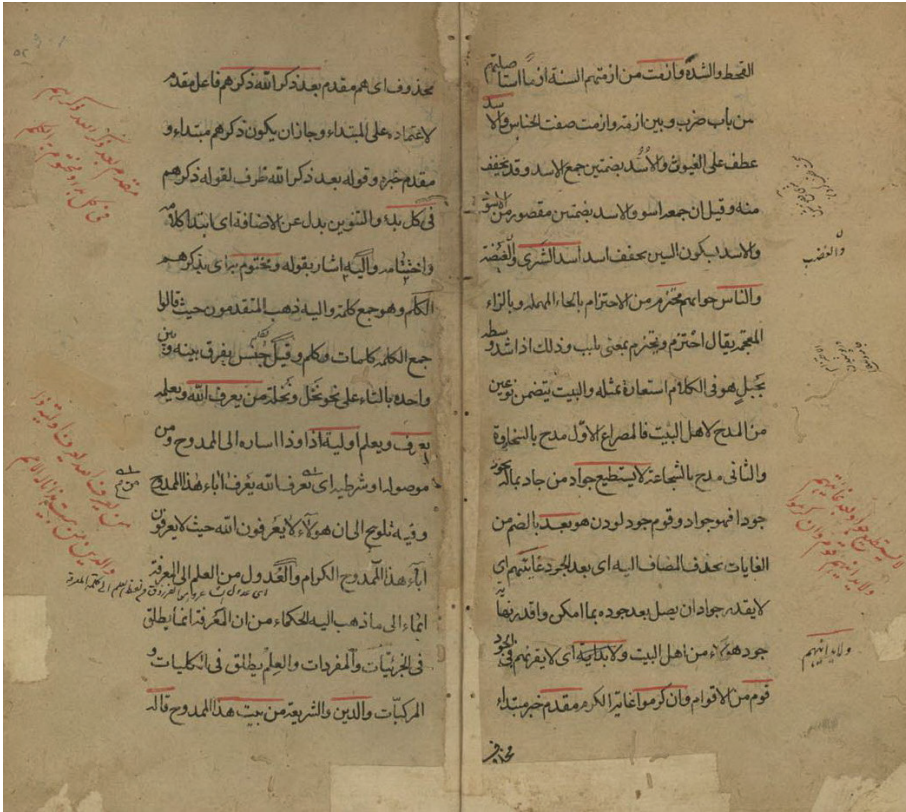 القحط والشدة وازمت من ازمتهم السنة ازمًا استاصلتهم
من باب ضرب وبين ازمة وازمت صفت الجناس والاسد
عطف على الغيوث والأُسُد بضمتين جمع الاسد وقد يخفف
منه وقيل ان جمعه اسو والاسد بضمتين مقصور من الاسود
والاسد بسكون السين مخفف اسد اسد الشرى والغيضة
والناس حوا محتزم من الاحتزام بالحاء المهملة وبالزاء
المعجمة يقال احتزم ويحتزم بمعنى بابب وذلك اذا شد وسطه
بحبل هو فى الكلام استعارة ممثلة والبيت يتضمن نوعين
من المدح لاهل البيت فالمصراع الاوّل مدح بالسخاوة
والثانى مدح بالشجاعة لا يستطيع جواد من جاد بماله يجود
جودا فهو جواد وقوم جود لودن هو بعد بالضم من
الغايات بحذف المضاف اليه اى بعد الجود غايتهم اى
لا يقدر جواد ان يصل بعد جوده بما امكن واقد نهاية
جود هؤلاء من اهل البيت ولا يدانيهم اى لا يقربهم فى الجود
قوم من الاقوام وان كرموا غاية الكرم مقدم خبر مبتداء
محذوف
والغضب
لا يستطيع جواد بعد غايتهم
ولا يدانيهم قوم وان كرموا
ولا يدانيهم
محذوف اى هم مقدم بعد ذكر الله ذكرهم فاعل مقدم
لاعتماده على المبتداء وجاز ان يكون ذكرهم مبتداء و
مقدم خبره وقوله بعد ذكر الله ظرف لقوله ذكرهم
فى كل بدء والتنوين بدل عن الاضافة اى ابتدا كلامه
واختتامه واليه اشار بقوله ومختوم به اى بذكرهم
الكلم وهو جمع كلمة واليه ذهب المتقدمون حيث قالوا
جمع الكلمة كلمات وكلم وقيل جنس يفرق بينه وبين
واحده بالتاء على نحو نخل ونخلة من يعرف الله ويعلمه
يعرف ويعلم اولية ذا وذا اشارة الى الممدوح ومن
موصولة او شرطية اى يعرف الله يعرف اباء هذا الممدوح
وفيه تلويح الى ان هؤلاء لا يعرفون الله حيث لا يعرفون
اباء هذا الممدوح الكرام والعدول من العلم الى المعرفة
ايماء الى ما ذهب اليه الحكماء من ان المعرفة انما يطلق
فى الجزئيات والمفردات والعلم يطلق فى الكليات و
المركبات والدين والشريعة من بيت هذا الممدوح قاله
مقدم بعد ذكر الله ذكرهم
فى كل بدء ومختوم به الكلم
من يعرف الله يعرف اولية ذا
والدين من بيت هذا ناله الامم